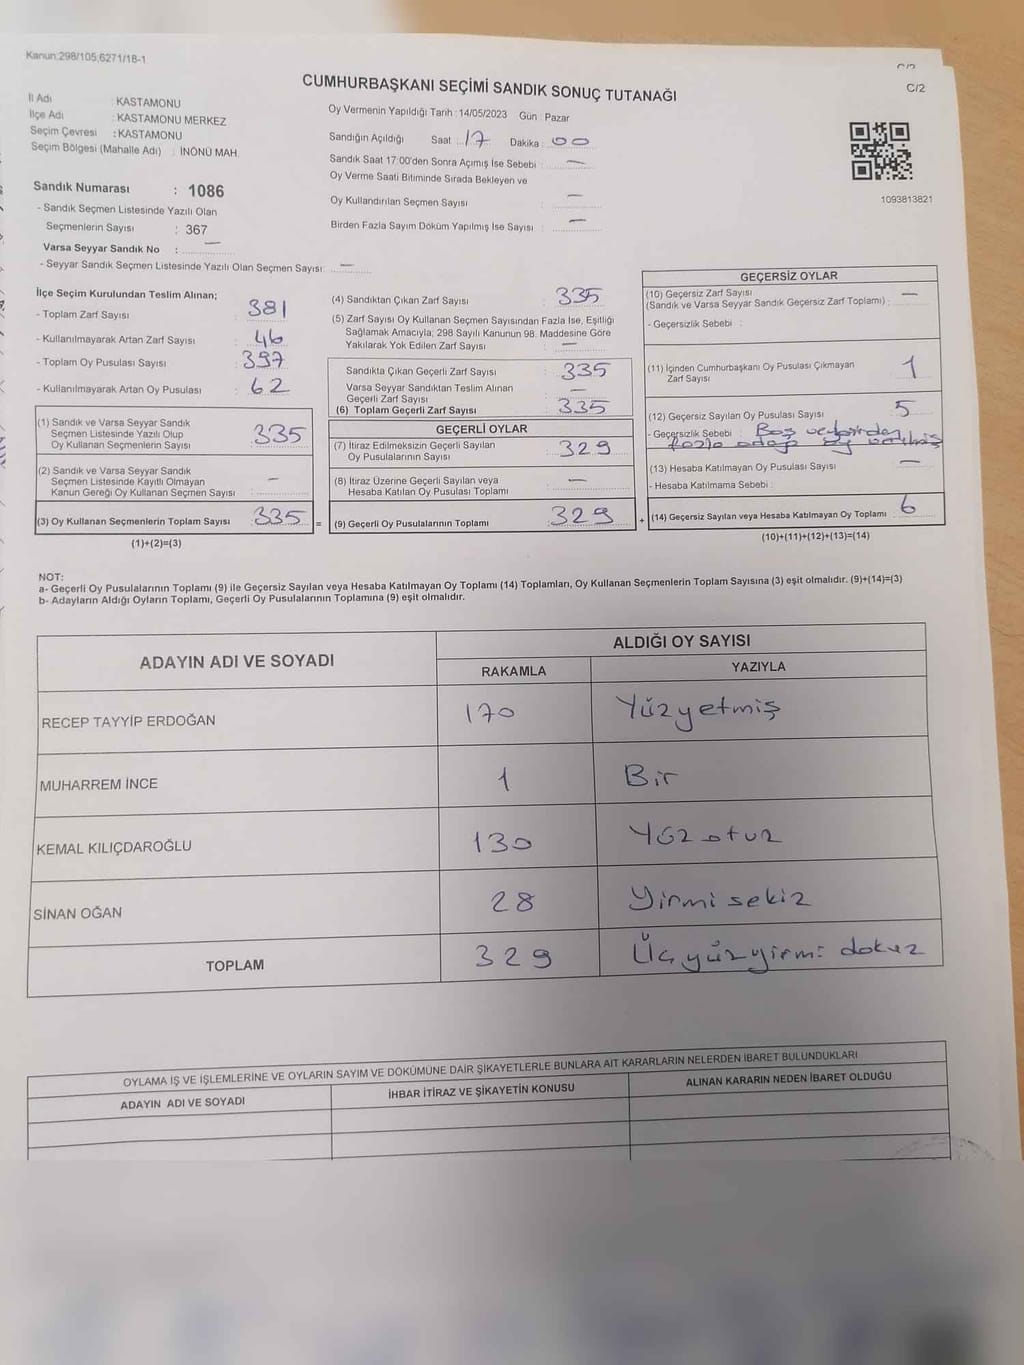 Kanun:298/105;6271/18-1
C/2
CUMHURBAŞKANI SEÇİMİ SANDIK SONUÇ TUTANAĞI
C/2
İl Adı : KASTAMONU
İlçe Adı : KASTAMONU MERKEZ
Seçim Çevresi : KASTAMONU
Seçim Bölgesi (Mahalle Adı) : İNÖNÜ MAH.
Oy Vermenin Yapıldığı Tarih : 14/05/2023 Gün : Pazar
Sandığın Açıldığı Saat : 17 Dakika : 00
Sandık Saat 17:00'den Sonra Açımış İse Sebebi : —
Oy Verme Saati Bitiminde Sırada Bekleyen ve
Oy Kullandırılan Seçmen Sayısı : —
Birden Fazla Sayım Döküm Yapılmış İse Sayısı : —
1093813821
Sandık Numarası : 1086
- Sandık Seçmen Listesinde Yazılı Olan
Seçmenlerin Sayısı : 367
Varsa Seyyar Sandık No : —
- Seyyar Sandık Seçmen Listesinde Yazılı Olan Seçmen Sayısı: —
İlçe Seçim Kurulundan Teslim Alınan;
- Toplam Zarf Sayısı : 381
- Kullanılmayarak Artan Zarf Sayısı : 46
- Toplam Oy Pusulası Sayısı : 397
- Kullanılmayarak Artan Oy Pusulası : 62
(1) Sandık ve Varsa Seyyar Sandık
Seçmen Listesinde Yazılı Olup
Oy Kullanan Seçmenlerin Sayısı : 335
(2) Sandık ve Varsa Seyyar Sandık
Seçmen Listesinde Kayıtlı Olmayan
Kanun Gereği Oy Kullanan Seçmen Sayısı : —
(3) Oy Kullanan Seçmenlerin Toplam Sayısı : 335 =
(1)+(2)=(3)
(4) Sandıktan Çıkan Zarf Sayısı : 335
(5) Zarf Sayısı Oy Kullanan Seçmen Sayısından Fazla İse, Eşitliği
Sağlamak Amacıyla; 298 Sayılı Kanunun 98. Maddesine Göre
Yakılarak Yok Edilen Zarf Sayısı : —
Sandıkta Çıkan Geçerli Zarf Sayısı : 335
Varsa Seyyar Sandıktan Teslim Alınan
Geçerli Zarf Sayısı : —
(6) Toplam Geçerli Zarf Sayısı : 335
GEÇERLİ OYLAR
(7) İtiraz Edilmeksizin Geçerli Sayılan
Oy Pusulalarının Sayısı : 329
(8) İtiraz Üzerine Geçerli Sayılan veya
Hesaba Katılan Oy Pusulası Toplamı : —
(9) Geçerli Oy Pusulalarının Toplamı : 329 +
GEÇERSİZ OYLAR
(10) Geçersiz Zarf Sayısı
(Sandık ve Varsa Seyyar Sandık Geçersiz Zarf Toplamı) : —
- Geçersizlik Sebebi :
(11) İçinden Cumhurbaşkanı Oy Pusulası Çıkmayan
Zarf Sayısı 1
(12) Geçersiz Sayılan Oy Pusulası Sayısı : 5
- Geçersizlik Sebebi : Boş ve birden
fazla adaya oy verilmiş
(13) Hesaba Katılmayan Oy Pusulası Sayısı : —
- Hesaba Katılmama Sebebi :
(14) Geçersiz Sayılan veya Hesaba Katılmayan Oy Toplamı : 6
(10)+(11)+(12)+(13)=(14)
NOT:
a- Geçerli Oy Pusulalarının Toplamı (9) ile Geçersiz Sayılan veya Hesaba Katılmayan Oy Toplamı (14) Toplamları, Oy Kullanan Seçmenlerin Toplam Sayısına (3) eşit olmalıdır. (9)+(14)=(3)
b- Adayların Aldığı Oyların Toplamı, Geçerli Oy Pusulalarının Toplamına (9) eşit olmalıdır.
ADAYIN ADI VE SOYADI
ALDIĞI OY SAYISI
RAKAMLA YAZIYLA
RECEP TAYYİP ERDOĞAN 170 Yüzyetmiş
MUHARREM İNCE 1 Bir
KEMAL KILIÇDAROĞLU 130 Yüz otuz
SİNAN OĞAN 28 Yirmi sekiz
TOPLAM 329 Üçyüzyirmi dokuz
OYLAMA İŞ VE İŞLEMLERİNE VE OYLARIN SAYIM VE DÖKÜMÜNE DAİR ŞİKAYETLERLE BUNLARA AİT KARARLARIN NELERDEN İBARET BULUNDUKLARI
ADAYIN ADI VE SOYADI İHBAR İTİRAZ VE ŞİKAYETİN KONUSU ALINAN KARARIN NEDEN İBARET OLDUĞU